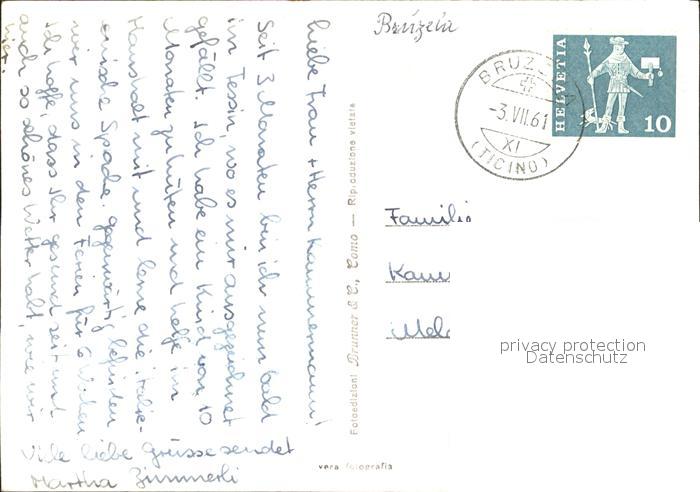 Bruzela
HELVETIA
10
BRUZELLA
-3.VII.61
XI
(TICINO)
Liebe Frau + Herrn Kammermann!
Seit 3 Monaten bin ich nun bald
im Tessin, wo es mir ausgezeichnet
gefällt. Ich habe ein Kind von 10
Monaten zu hüten und helfe im
Haushalt mit und lerne die italie-
enische Sprache. Gegenwärtig befinden
wir uns in den Ferien für 6 Wochen
Ich hoffe, dass Ihr gesund seit und
auch so schönes Wetter habt, wie wir
hier.
Viele liebe Grüsse sendet
Martha Zimmerli
Fotoedizioni Brunner & C., Como — Riproduzione vietata
vera fotografia
Familie
Kam
privacy protection
Datenschutz